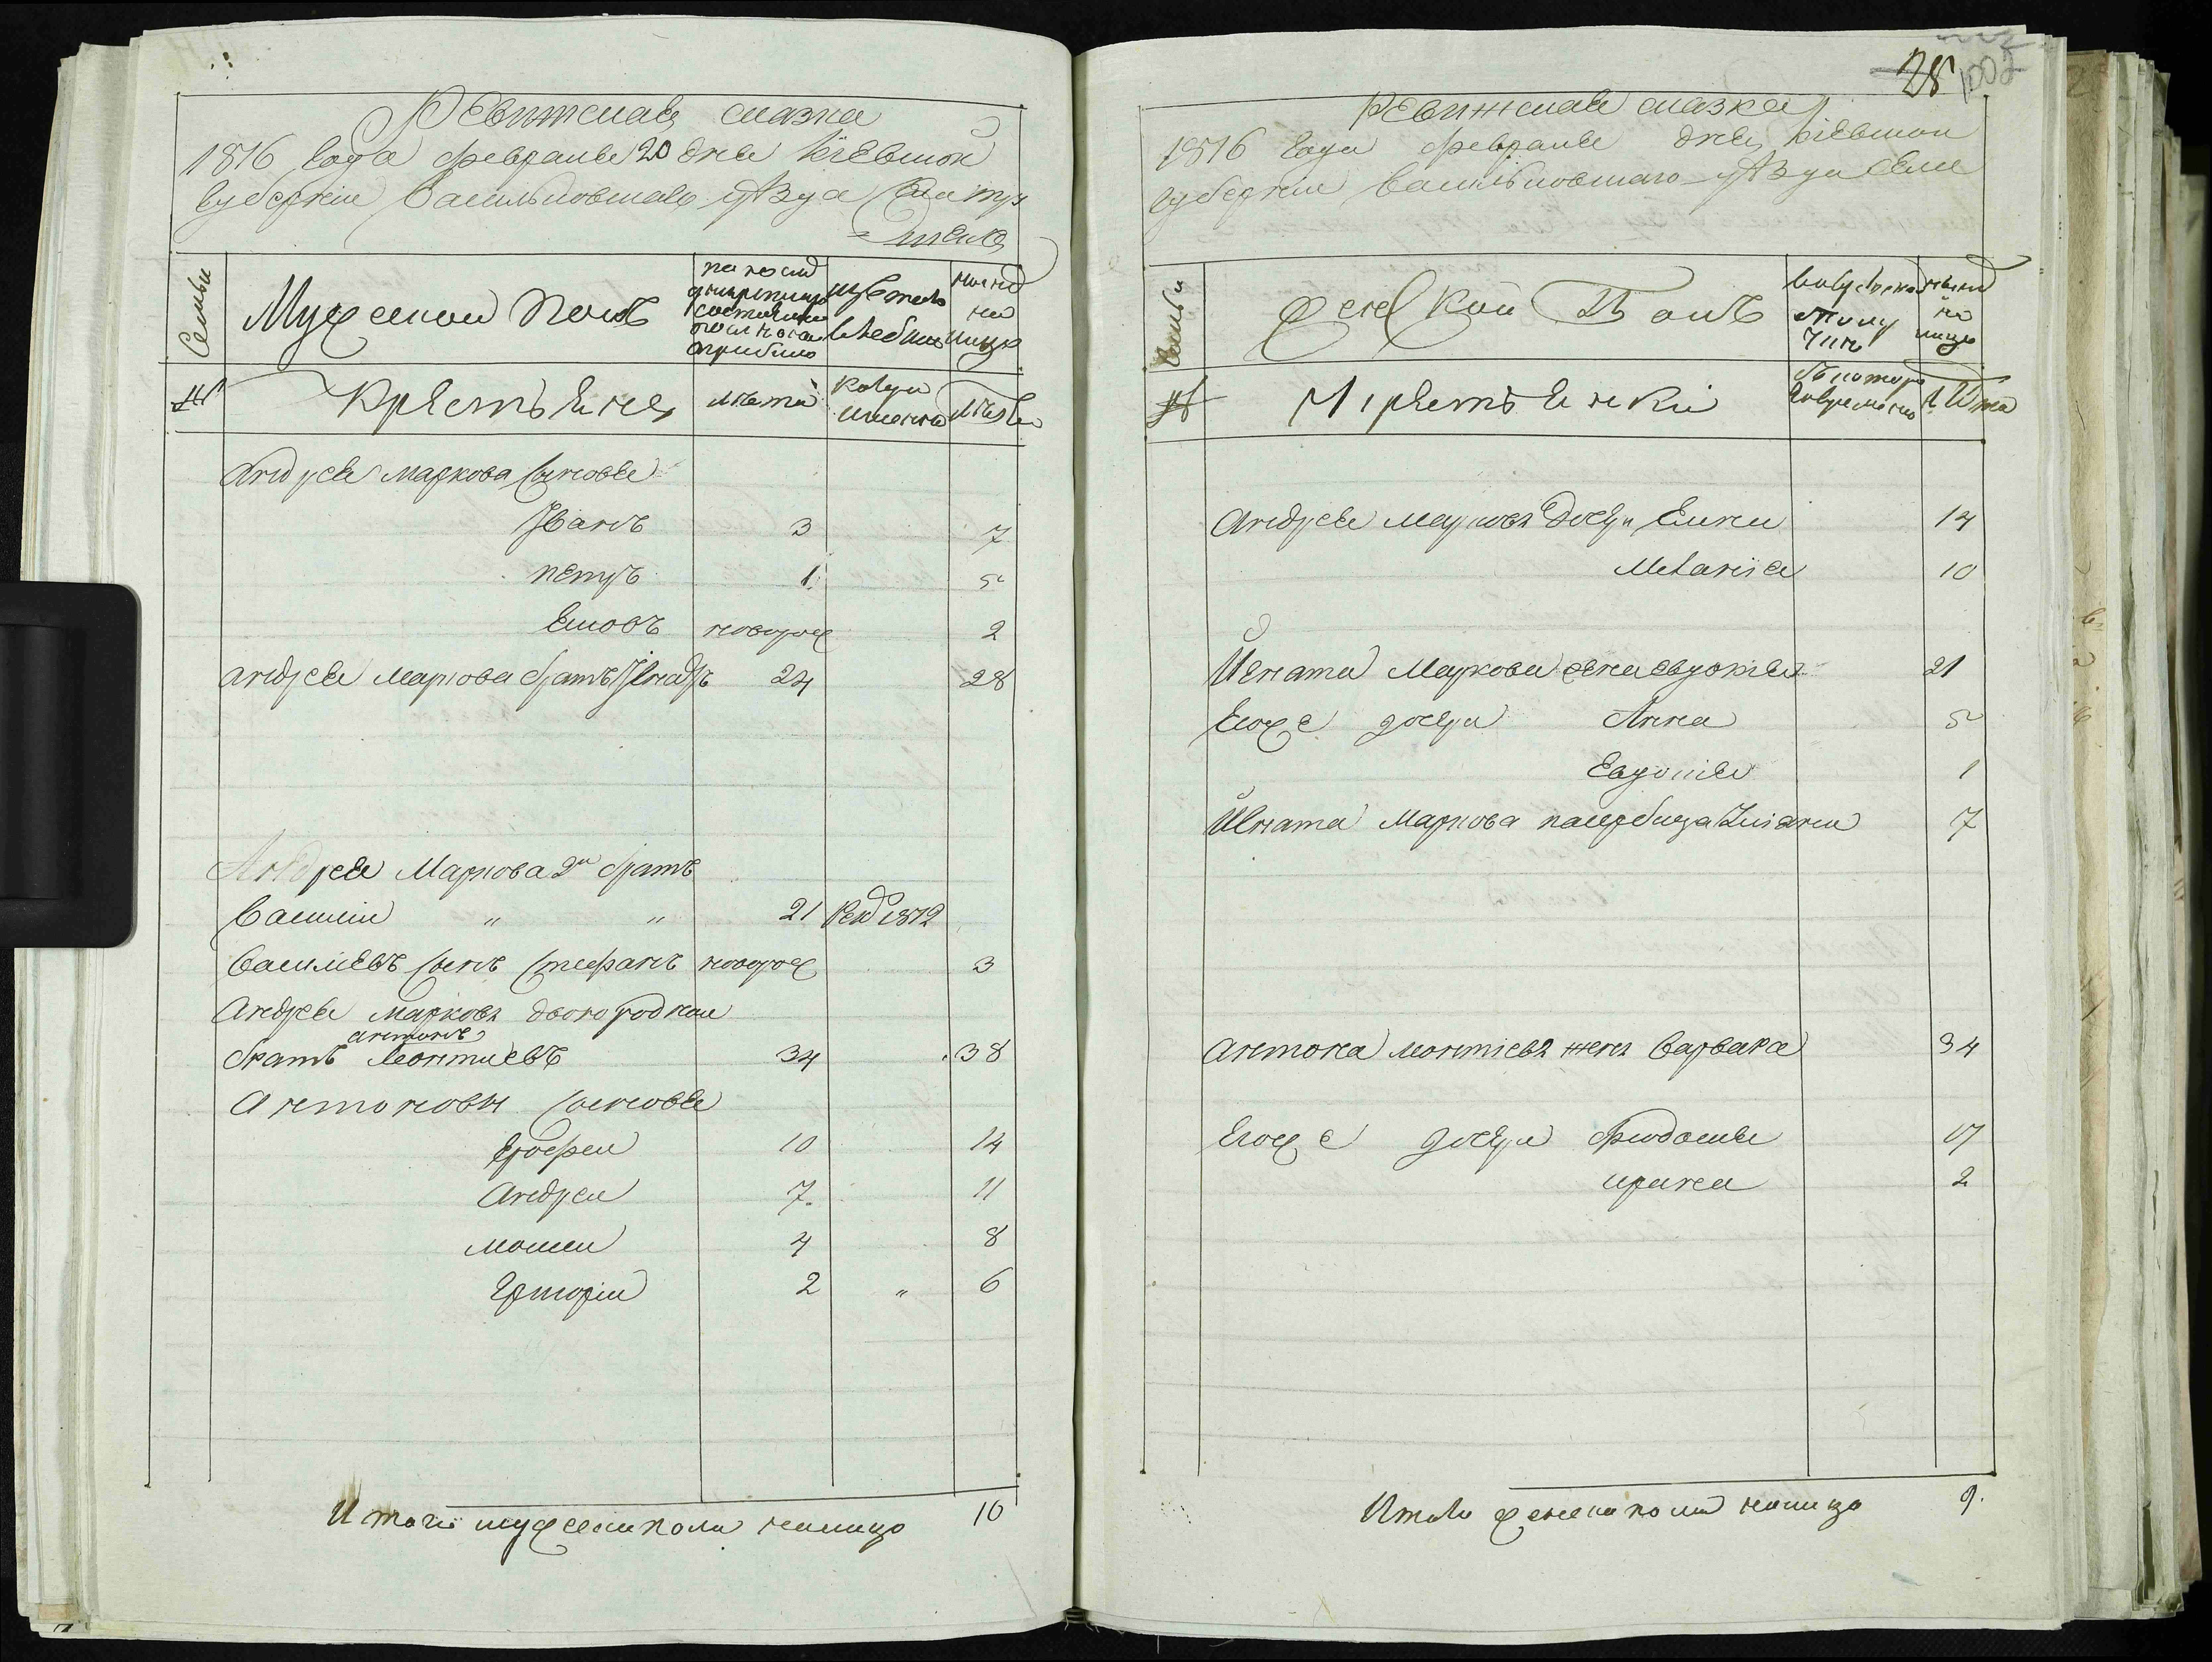 Ревижская сказка
1816 года февраля 20 дня Киевской
губернии Васильковскаго уѣзда
Семьи
Мужескои полъ
по послѣд
ревизіи
состояло
и после того
прибыло
изъ того
числа
выбыло
нынѣ
на
лицо
Крестьяне
лѣта
когда
именно
лѣта
Андрея Маркова сыновья
Иванъ 3 7
петръ 1 5
Яковъ новорож 2
андрея Маркова братъ Игнатъ 24 28
Андрея Маркова 2й братъ
Василіи " " 21 Рек 1812
Василіевъ сынъ Стефанъ новорож 3
Андрея Маркова двоюродной
антонъ
братъ Леонтиевъ 34 38
Антоновы сыновья
Ерофеи 10 14
Андреи 7 11
Моисеи 4 8
Григоріи 2 " 6
Итого мужеска пола налицо 10
28
1002
Ревижская сказка
1816 года февраля дня Киевской
губернии Васильковскаго уѣзда села
Семьи
Женскои Полъ
нынѣ
на
лицо
Крестьянки
лѣта
Андрея Маркова дочери Елена 14
Меланія 10
Игната Маркова жена Евдокия 21
Егож е дочери Анна 5
Евдокия 1
Игната Маркова падчерица Улияна 7
Антона Леонтіева жена Варвара 34
Егож е дочери Феодосия 17
ирина 2
Итого женска пола налицо 9.